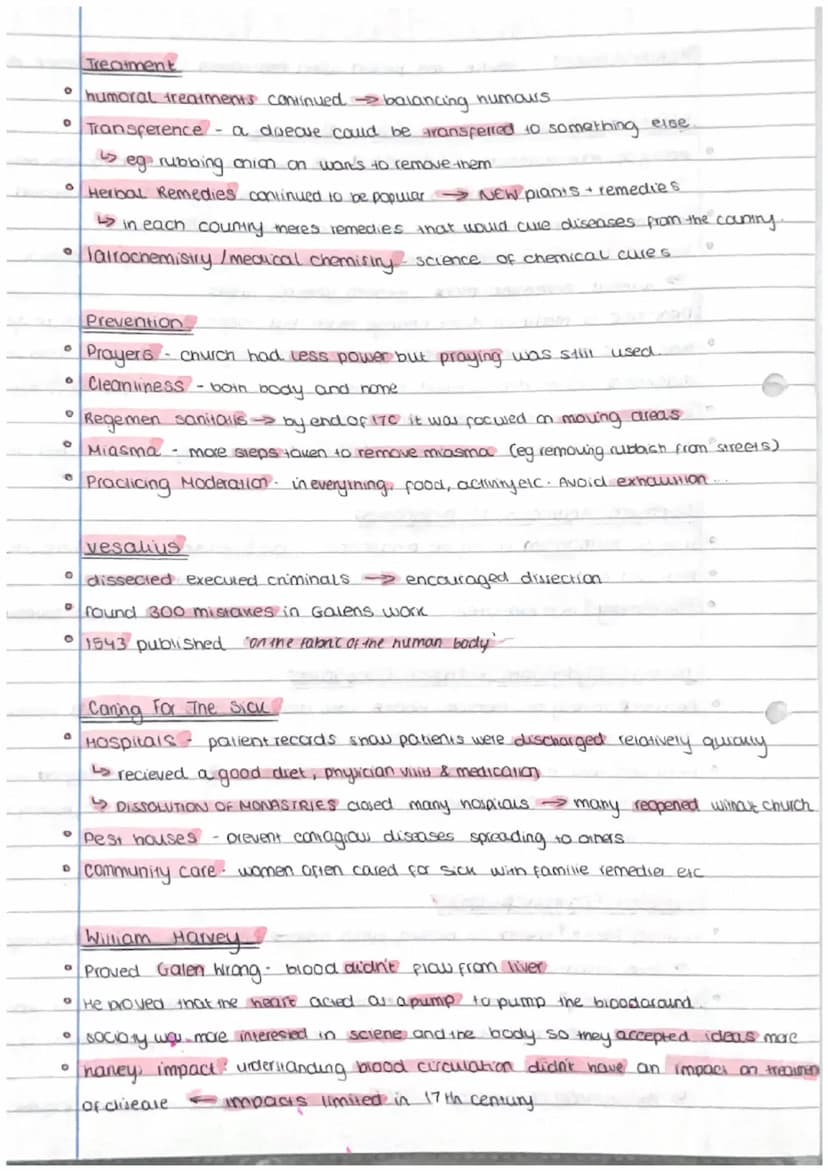 Treatment
• humoral treatments continued → balancing humours
• Transference - a disease could be transferred to something else.
↳ eg rubbing onion on warts to remove them
• Herbal Remedies continued to be popular → NEW plants + remedies
↳ in each country theres remedies that would cure diseases from the country.
• Iatrochemistry / medical chemistry - science of chemical cures
Prevention
• Prayers - church had less power but praying was still used.
• Cleanliness - both body and home
• Regemen sanitatis → by end of 17C it was focused on moving areas
• Miasma - more steps taken to remove miasma (eg removing rubbish from streets)
• Practicing Moderation - in everything, food, activity etc. Avoid exhaustion...
Vesalius
• dissected executed criminals → encouraged dissection
• found 300 mistakes in Galens work
• 1543 published "on the fabric of the human body"
Caring For The Sick
• Hospitals - patient records show patients were discharged relatively quickly
↳ recieved a good diet, physician visits & medication
↳ DISSOLUTION OF MONASTRIES closed many hospitals → many reopened without church
• Pest houses - prevent contagious diseases spreading to others
• Community care - women often cared for sick with familie remedies etc
William Harvey
• Proved Galen Wrong - blood didn't flow from liver
• He proved that the heart acted as a pump to pump the blood around.
• society was more interested in sciene and the body so they accepted ideas more
• harvey impact: understanding blood circulation didn't have an impact on treatment
of disease ← impacts limited in 17th century